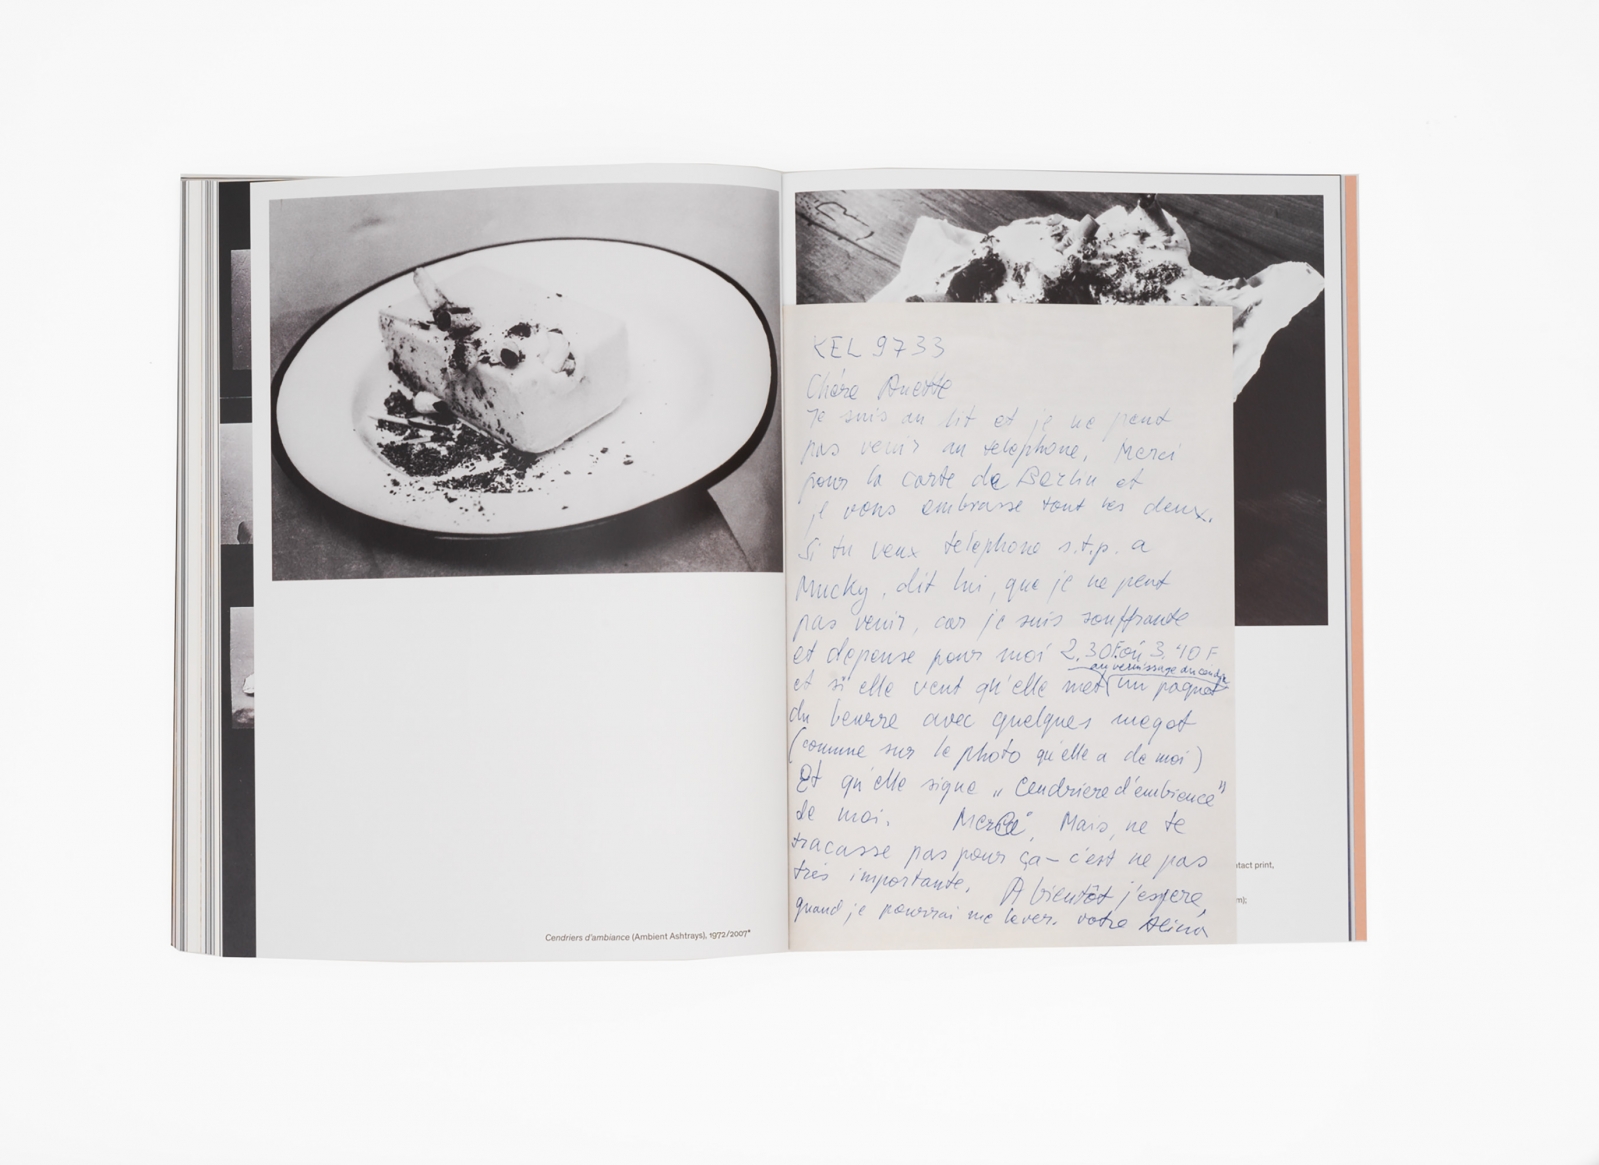 Cendriers d'ambiance (Ambient Ashtrays), 1972/2007*
KEL 9733
Chère Anette
Je suis au lit et je ne peut
pas venir au telephone. Merci
pour la carte de Berlin et
je vous embrasse tout les deux.
Si tu veux telephone s.t.p. a
Mucky, dit lui, que je ne peut
pas venir, car je suis souffrante
et depense pour moi 2.30F où 3.40 F
au vernissage du
et si elle veut qu'elle met un paquet
du beurre avec quelques megot
(comme sur le photo qu'elle a de moi)
Et qu'elle signe „Cendriere d'embience"
de moi. Merci, Mais, ne te
tracasse pas pour ça – c'est ne pas
très importante. A bientôt j'espere,
quand je pourrai me lever. votre Alina
tact print,
m);